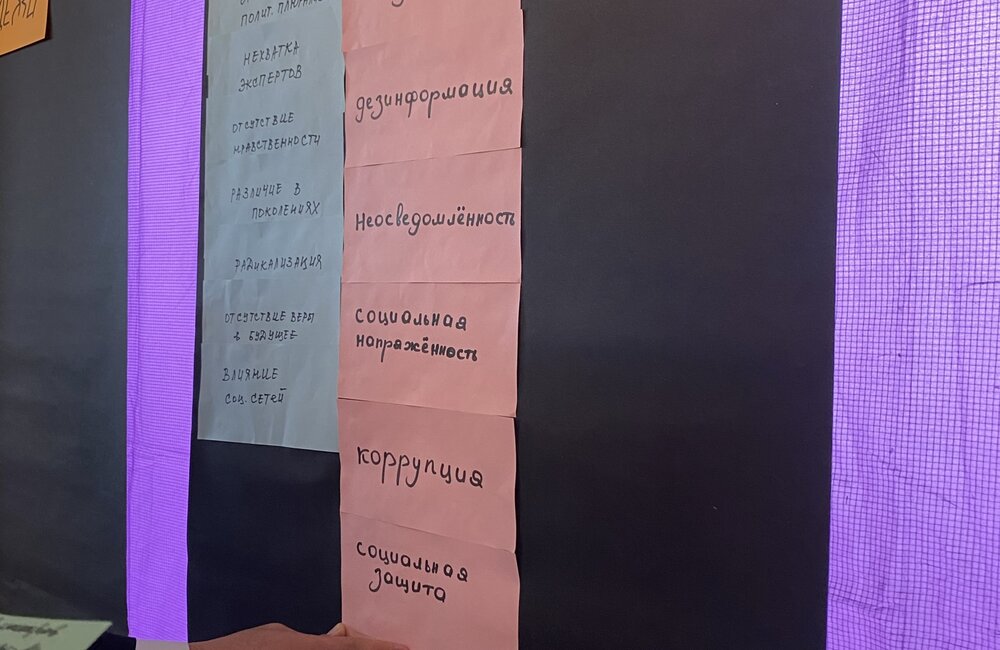 ПОЛИТ. ПЛЮРАЛИЗ
НЕХВАТКА
ЭКСПЕРТОВ
ОТСУТСТВИЕ
НРАВСТВЕННОСТИ
РАЗЛИЧИЕ В
ПОКОЛЕНИЯХ
РАДИКАЛИЗАЦИЯ
ОТСУТСТВИЕ ВЕРЫ
в БУДУЩЕЕ
ВЛИЯНИЕ
СОЦ. СЕТЕЙ
дезинформация
Неосведомлённость
социальная
напряжённость
коррупция
социальная
защита